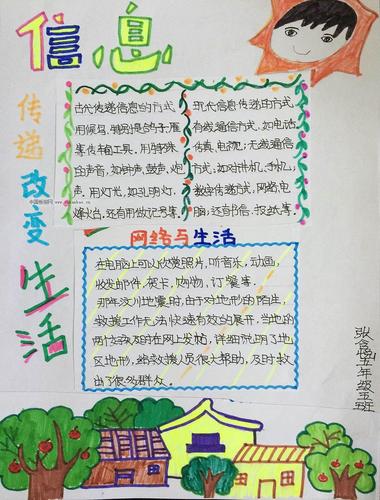 信息
传递改变
生活
古代传递信息的方式
用候鸟,特别是鸽子、雁
等传输工具。用特殊
的声音,如钟声、鼓声、炮
声,用灯光,如孔明灯、
烽火台,还有用做记号等。
现代信息传递的方式
有线通信方式,如电话、
传真、电视;无线通信
方式,如对讲机、手机;
数字传递方式,网络、电
脑;还有书信、报纸等。
网络与生活
在电脑上可以欣赏照片,听音乐,动画,
收发邮件,贺卡,购物,订餐等。
那年汶川地震时,由于对地形的陌生,
救援工作无法快速有效的展开,当地的
两位教友及时在网上发帖,详细说明了地
区地形,给救援人员很大帮助,及时救
出了很多群众。
张含悦五年级五班